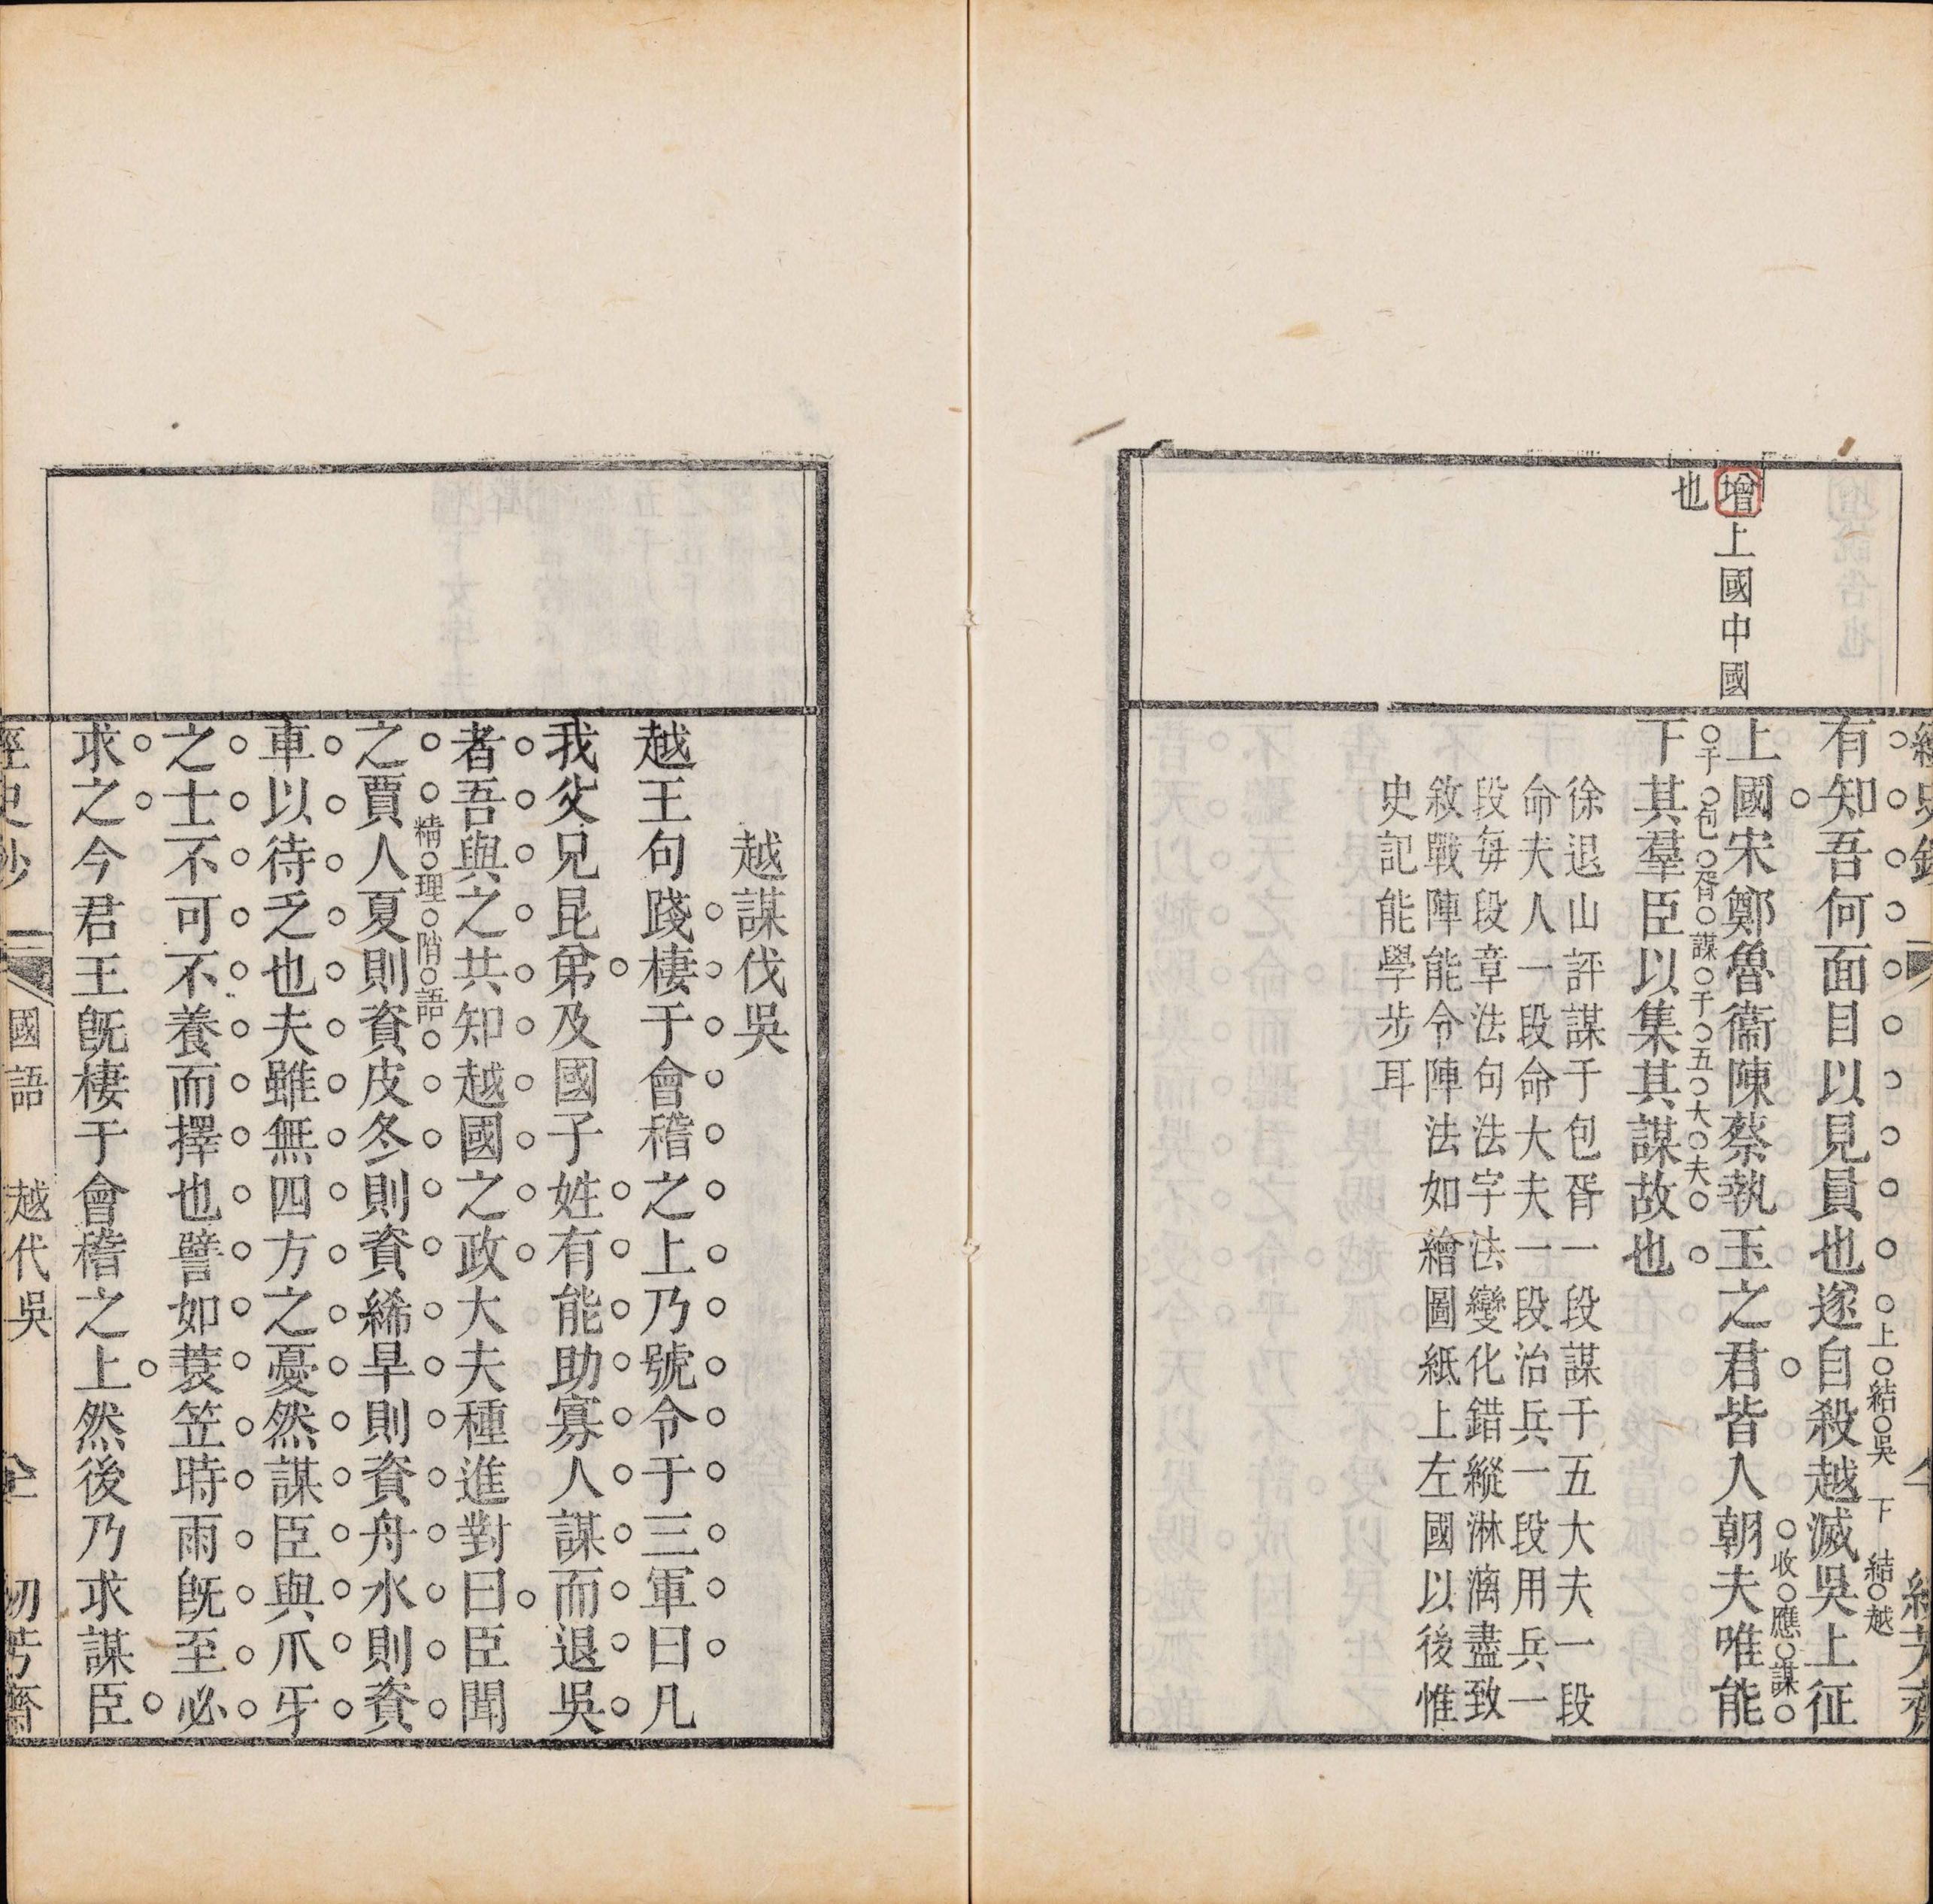 增上國中國
也
有知吾何面目以見員也遂自殺越滅吳上征
上結吳
下結越
上國宋鄭魯衞陳蔡執玉之君皆入朝夫唯能
收應謀
下其羣臣以集其謀故也
于包胥謀于五大夫
徐退山評謀于包胥一段謀于五大夫一段
命夫人一段命大夫一段治兵一段用兵一
段每段章法句法字法變化錯縱淋漓盡致
敘戰陣能令陣法如繪圖紙上左國以後惟
史記能學步耳
越謀伐吳
越王句踐棲于會稽之上乃號令于三軍曰凡
我父兄昆弟及國子姓有能助寡人謀而退吳
者吾與之共知越國之政大夫種進對曰臣聞
之賈人夏則資皮冬則資絺旱則資舟水則資
精理附語
車以待乏也夫雖無四方之憂然謀臣與爪牙
之士不可不養而擇也譬如蓑笠時雨旣至必
求之今君王旣棲于會稽之上然後乃求謀臣
國語 越代吳